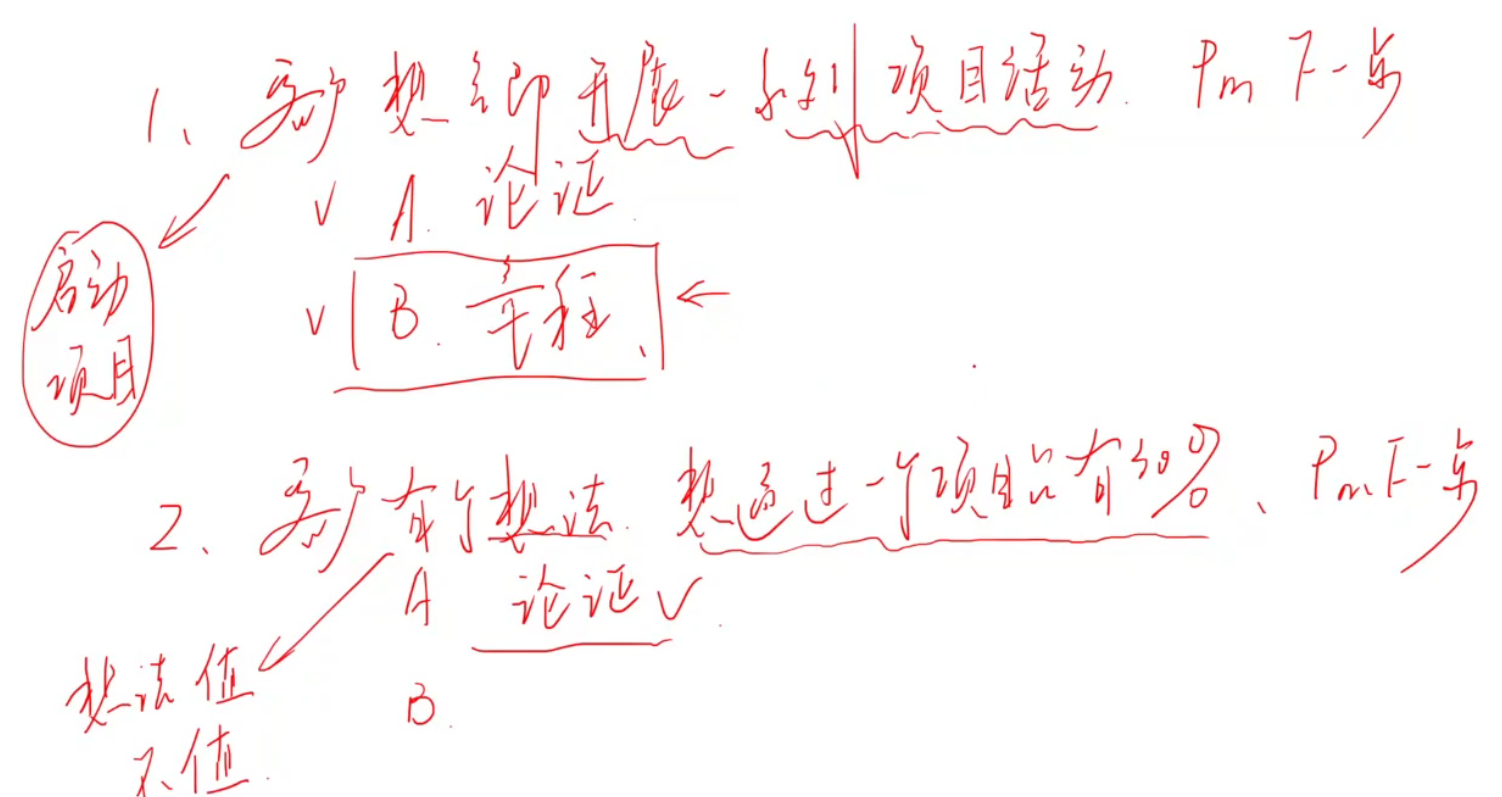 1、客户想立即开展一系列项目活动. Pm下一步
√ A. 论证
启动 √ B. 章程
项目
2、客户有个想法. 想通过一个项目占有30%、Pm下一步
A 论证√
想法值 B.
不值.